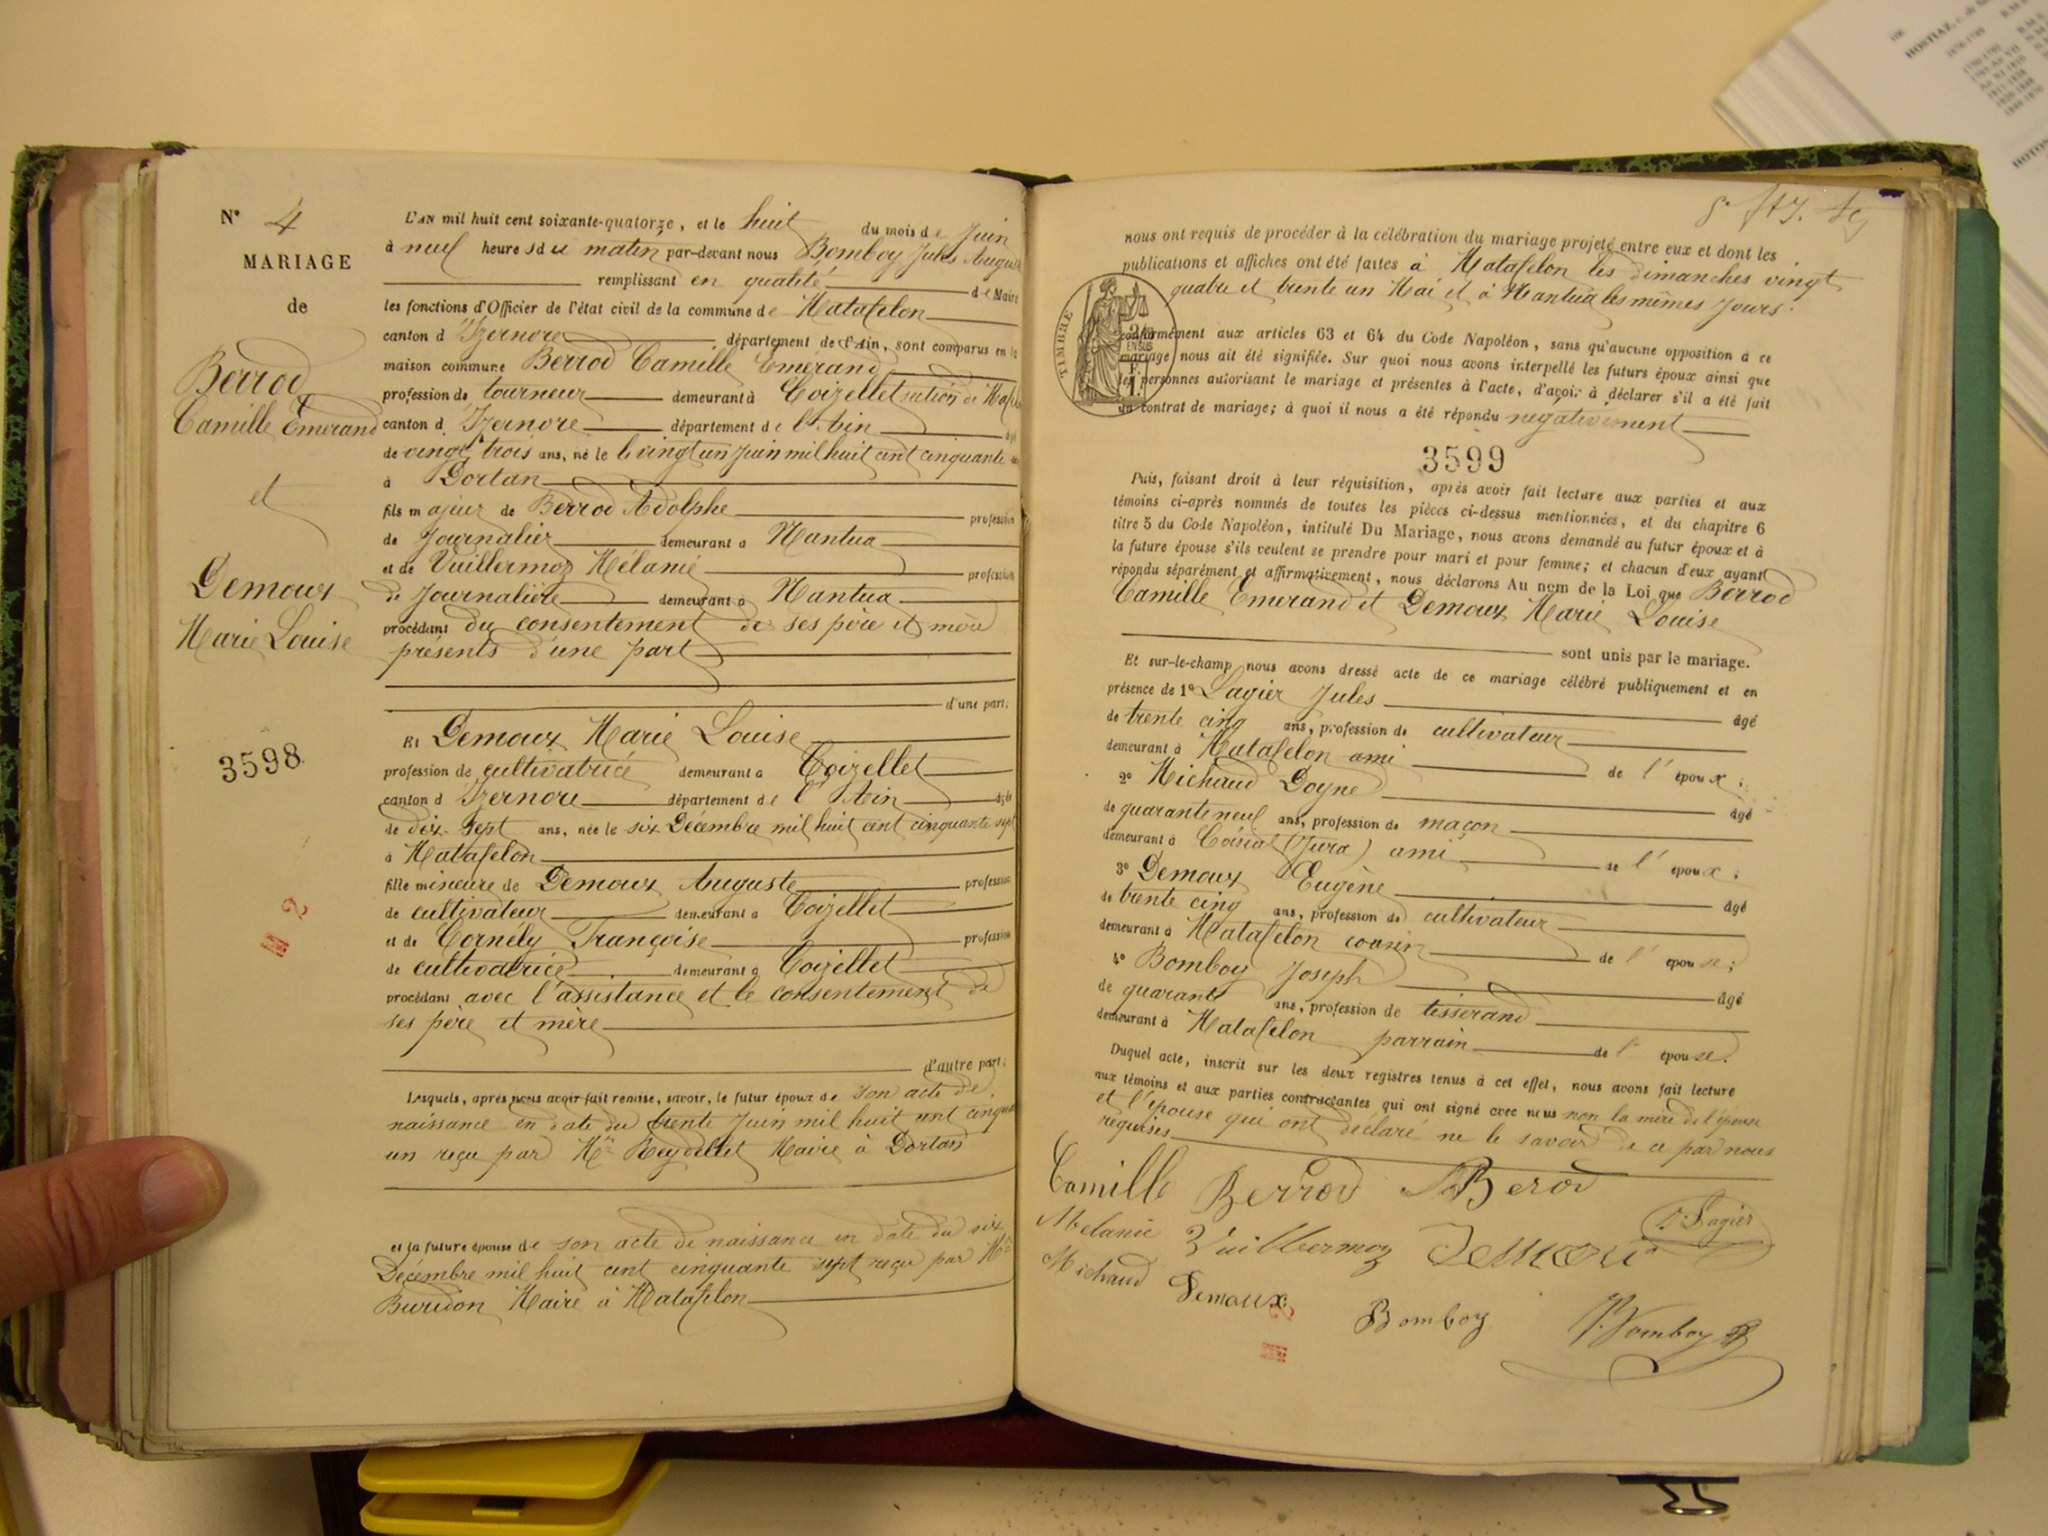 N° 4
MARIAGE
de
Berrod
Camille Emerand
et
Demoux
Marie Louise
3598
L'AN mil huit cent soixante-quatorze, et le huit du mois de Juin
à neuf heures du matin par-devant nous Bomboy Jules Auguste
remplissant en qualité de Maire
les fonctions d'Officier de l'état civil de la commune de Matafelon
canton d'Izernore département de l'Ain, sont comparus en la
maison commune Berrod Camille Emérand
profession de tourneur demeurant à Coizellet section de
canton d'Izernore département de l'Ain âgé
de vingt trois ans, né le le vingt un Juin mil huit cent cinquante un
à Dortan
fils majeur de Berrod Adolphe profession
de Journalier demeurant à Nantua
et de Vuillermoz Mélanie profession
de Journalière demeurant à Nantua
procédant du consentement de ses père et mère
présents d'une part
d'une part;
Et Demoux Marie Louise
profession de cultivatrice demeurant à Coizellet
canton d'Izernore département de l'Ain âgée
de dix-sept ans, née le six Décembre mil huit cent cinquante sept
à Matafelon
fille mineure de Demoux Auguste profession
de cultivateur demeurant à Coizellet
et de Cornély Françoise profession
de cultivatrice demeurant à Coizellet
procédant avec l'assistance et le consentement de
ses père et mère
d'autre part;
Lesquels, après nous avoir fait remise, savoir, le futur époux de son acte de
naissance en date du trente Juin mil huit cent cinquante
un reçu par Mr Reydellet Maire à Dortan
et la future épouse de son acte de naissance en date du six
Décembre mil huit cent cinquante sept reçu par Mr
Buridon Maire à Matafelon
nous ont requis de procéder à la célébration du mariage projeté entre eux et dont les
publications et affiches ont été faites à Matafelon les dimanches vingt
quatre et trente un Mai et à Nantua les mêmes jours.
TIMBRE
conformément aux articles 63 et 64 du Code Napoléon, sans qu'aucune opposition à ce
mariage nous ait été signifiée. Sur quoi nous avons interpellé les futurs époux ainsi que
les personnes autorisant le mariage et présentes à l'acte, d'avoir à déclarer s'il a été fait
un contrat de mariage; à quoi il nous a été répondu négativement
3599
Puis, faisant droit à leur réquisition, après avoir fait lecture aux parties et aux
témoins ci-après nommés de toutes les pièces ci-dessus mentionnées, et du chapitre 6
titre 5 du Code Napoléon, intitulé Du Mariage, nous avons demandé au futur époux et à
la future épouse s'ils veulent se prendre pour mari et pour femme; et chacun d'eux ayant
répondu séparément et affirmativement, nous déclarons Au nom de la Loi que Berrod
Camille Emerand et Demoux Marie Louise
sont unis par le mariage.
Et sur-le-champ nous avons dressé acte de ce mariage célébré publiquement et en
présence de 1° Lagier Jules âgé
de trente cinq ans, profession de cultivateur
demeurant à Matafelon ami de l'époux;
2° Michaud Doyne âgé
de quarante neuf ans, profession de maçon
demeurant à Coisia (Jura) ami de l'époux;
3° Demoux Eugène âgé
de trente cinq ans, profession de cultivateur
demeurant à Matafelon cousin de l'épouse;
4° Bomboy Joseph âgé
de quarante ans, profession de tisserand
demeurant à Matafelon parrain de l'épouse.
Duquel acte, inscrit sur les deux registres tenus à cet effet, nous avons fait lecture
aux témoins et aux parties contractantes qui ont signé avec nous non la mère de l'épouse
et l'épouse qui ont déclaré ne le savoir de ce par nous
requises
Camille Berrod Berod
J. Lagier
Melanie Vuillermoz Demoux
Michaud Demoux
Bomboy Bomboy